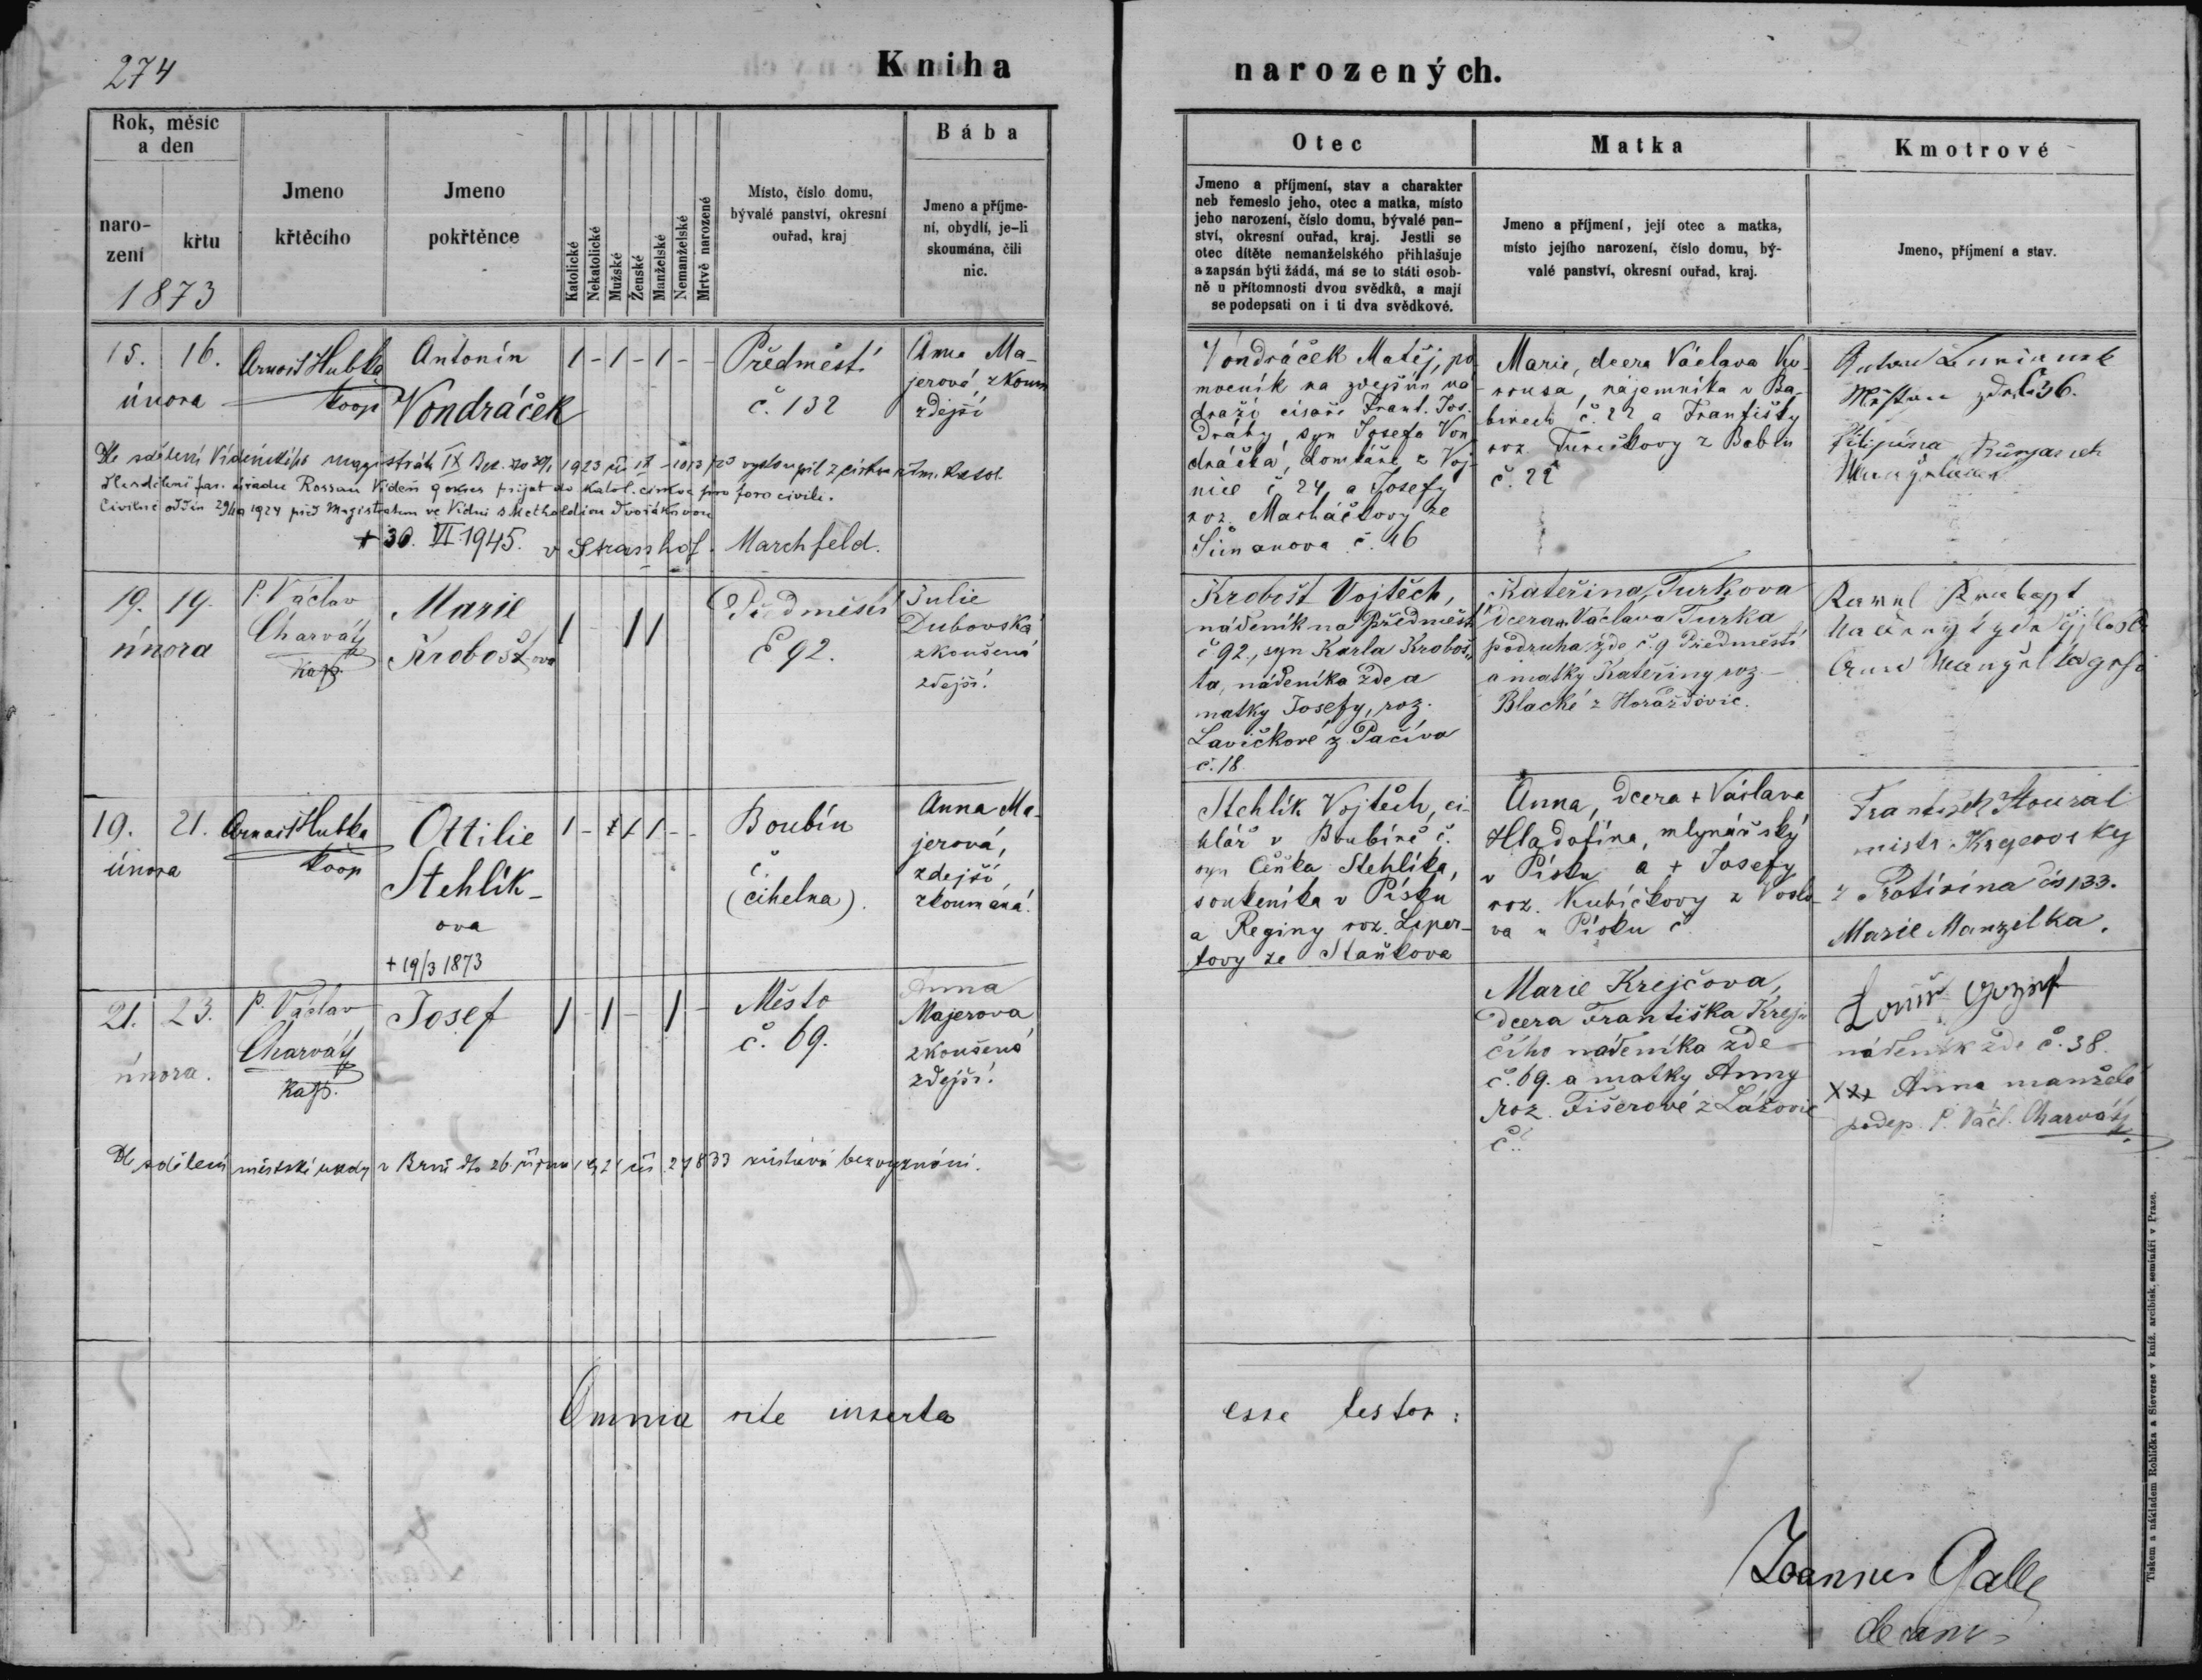 274
Kniha narozených.
Rok, měsíc a den
narození
křtu
1873
Jmeno křtěcího
Jmeno pokřtěnce
Katolické
Nekatolické
Mužské
Ženské
Manželské
Nemanželské
Mrtvě narozené
Místo, číslo domu, bývalé panství, okresní ouřad, kraj
Bába
Jmeno a příjmení, obydlí, je-li skoumána, čili nic.
Otec
Jmeno a příjmení, stav a charakter
neb řemeslo jeho, otec a matka, místo
jeho narození, číslo domu, bývalé pan-
ství, okresní ouřad, kraj. Jestli se
otec dítěte nemanželského přihlašuje
a zapsán býti žádá, má se to státi osob-
ně u přítomnosti dvou svědků, a mají
se podepsati on i ti dva svědkové.
Matka
Jmeno a příjmení, její otec a matka,
místo jejího narození, číslo domu, bý-
valé panství, okresní ouřad, kraj.
Kmotrové
Jmeno, příjmení a stav.
15. 16.
února
Arnošt Hubka
koop
Antonín
Vondráček
1 - 1 - 1 - -
Předměstí
č. 132
Anna Ma-
jerová, zkoum
zdejší
Vondráček Matěj, po
mocník na zdejším ná
draží císaře Frant. Jos.
Dráhy, syn Josefa Von
dráčka, domkáře z Voj-
nic č 24, a Josefy
roz. Macháčkovy ze
Šimanova č. 46
Marie, dcera Václava
nájemníka v Ba-
binech č. 22 a Františky
roz. Turečkovy z Babin
č. 22
36.
Filipína
Dle sdělení Vídeňského magistrátu IX Bez. 1923 vystoupil z církve řím. katol.
Dle sdělení far. úřadu Rossau Vídeň 9 okres přijat do katol. církve pro foro civili.
Civilně 1924 před Magistratem ve Vídni s Dvořákovou
+ 30. VI. 1945. v Strasshof. Marchfeld.
19. 19.
února
P. Václav
Charvát
Kap.
Marie
Krobošt, ova
1 1 1
Předměstí
č 92.
Julie
Dubovská
zkoušená
zdejší.
Krobošt Vojtěch,
nádeník na Předměstí
č 92., syn Karla Kroboš-
ta, nádeníka zde a
matky Josefy, roz.
Lavičkové z Pačiva
č. 18.
Kateřina Turkova
dcera Václava Turka
podruha zde č. 9 Předměstí
a matky Kateřiny roz.
Blacké z Horažďovic.
19. 21.
února
Arnošt Hubka
koop
Ottilie
Stehlík-
ova
+ 19/3 1873
1 - 1 1 - -
Boubín
č
(cihelna).
Anna Ma-
jerová,
zdejší
zkoumaná.
Stehlík Vojtěch, ci-
hlář v Boubíně č.
syn Čeňka Stehlíka,
soukeníka v Písku
a Reginy roz. Liper-
tovy ze Staňkova
Anna, dcera + Václava
Hladofína, mlynářský
v Písku a + Josefy
roz. Kubíčkovy z
va u Písku č
František Houzal
mistr Krejčovsky
z Protivína čís 133.
Marie Manzelka.
21. 23.
února.
P. Václav
Charvát
Kap.
Josef
1 - 1 - 1 -
Město
č. 69.
Anna
Majerova
zkoušená
zdejší.
Marie Krejčova,
dcera Františka Krej-
čího nádeníka zde
č. 69. a matky Anny
roz. Fišerové z Lážovic
č.
nádeník zde č. 38.
xxx Anna manželé
podep. P. Václ. Charvát
Dle sdělení městské rady v Brně dto 26 října 1921 čís 27833 zůstává bez vyznání.
Omnia rite inserta esse testor:
Joannes Galle
decanus
Tiskem a nákladem Rohlíčka a Sieverse v kníž. arcibisk. semináři v Praze.